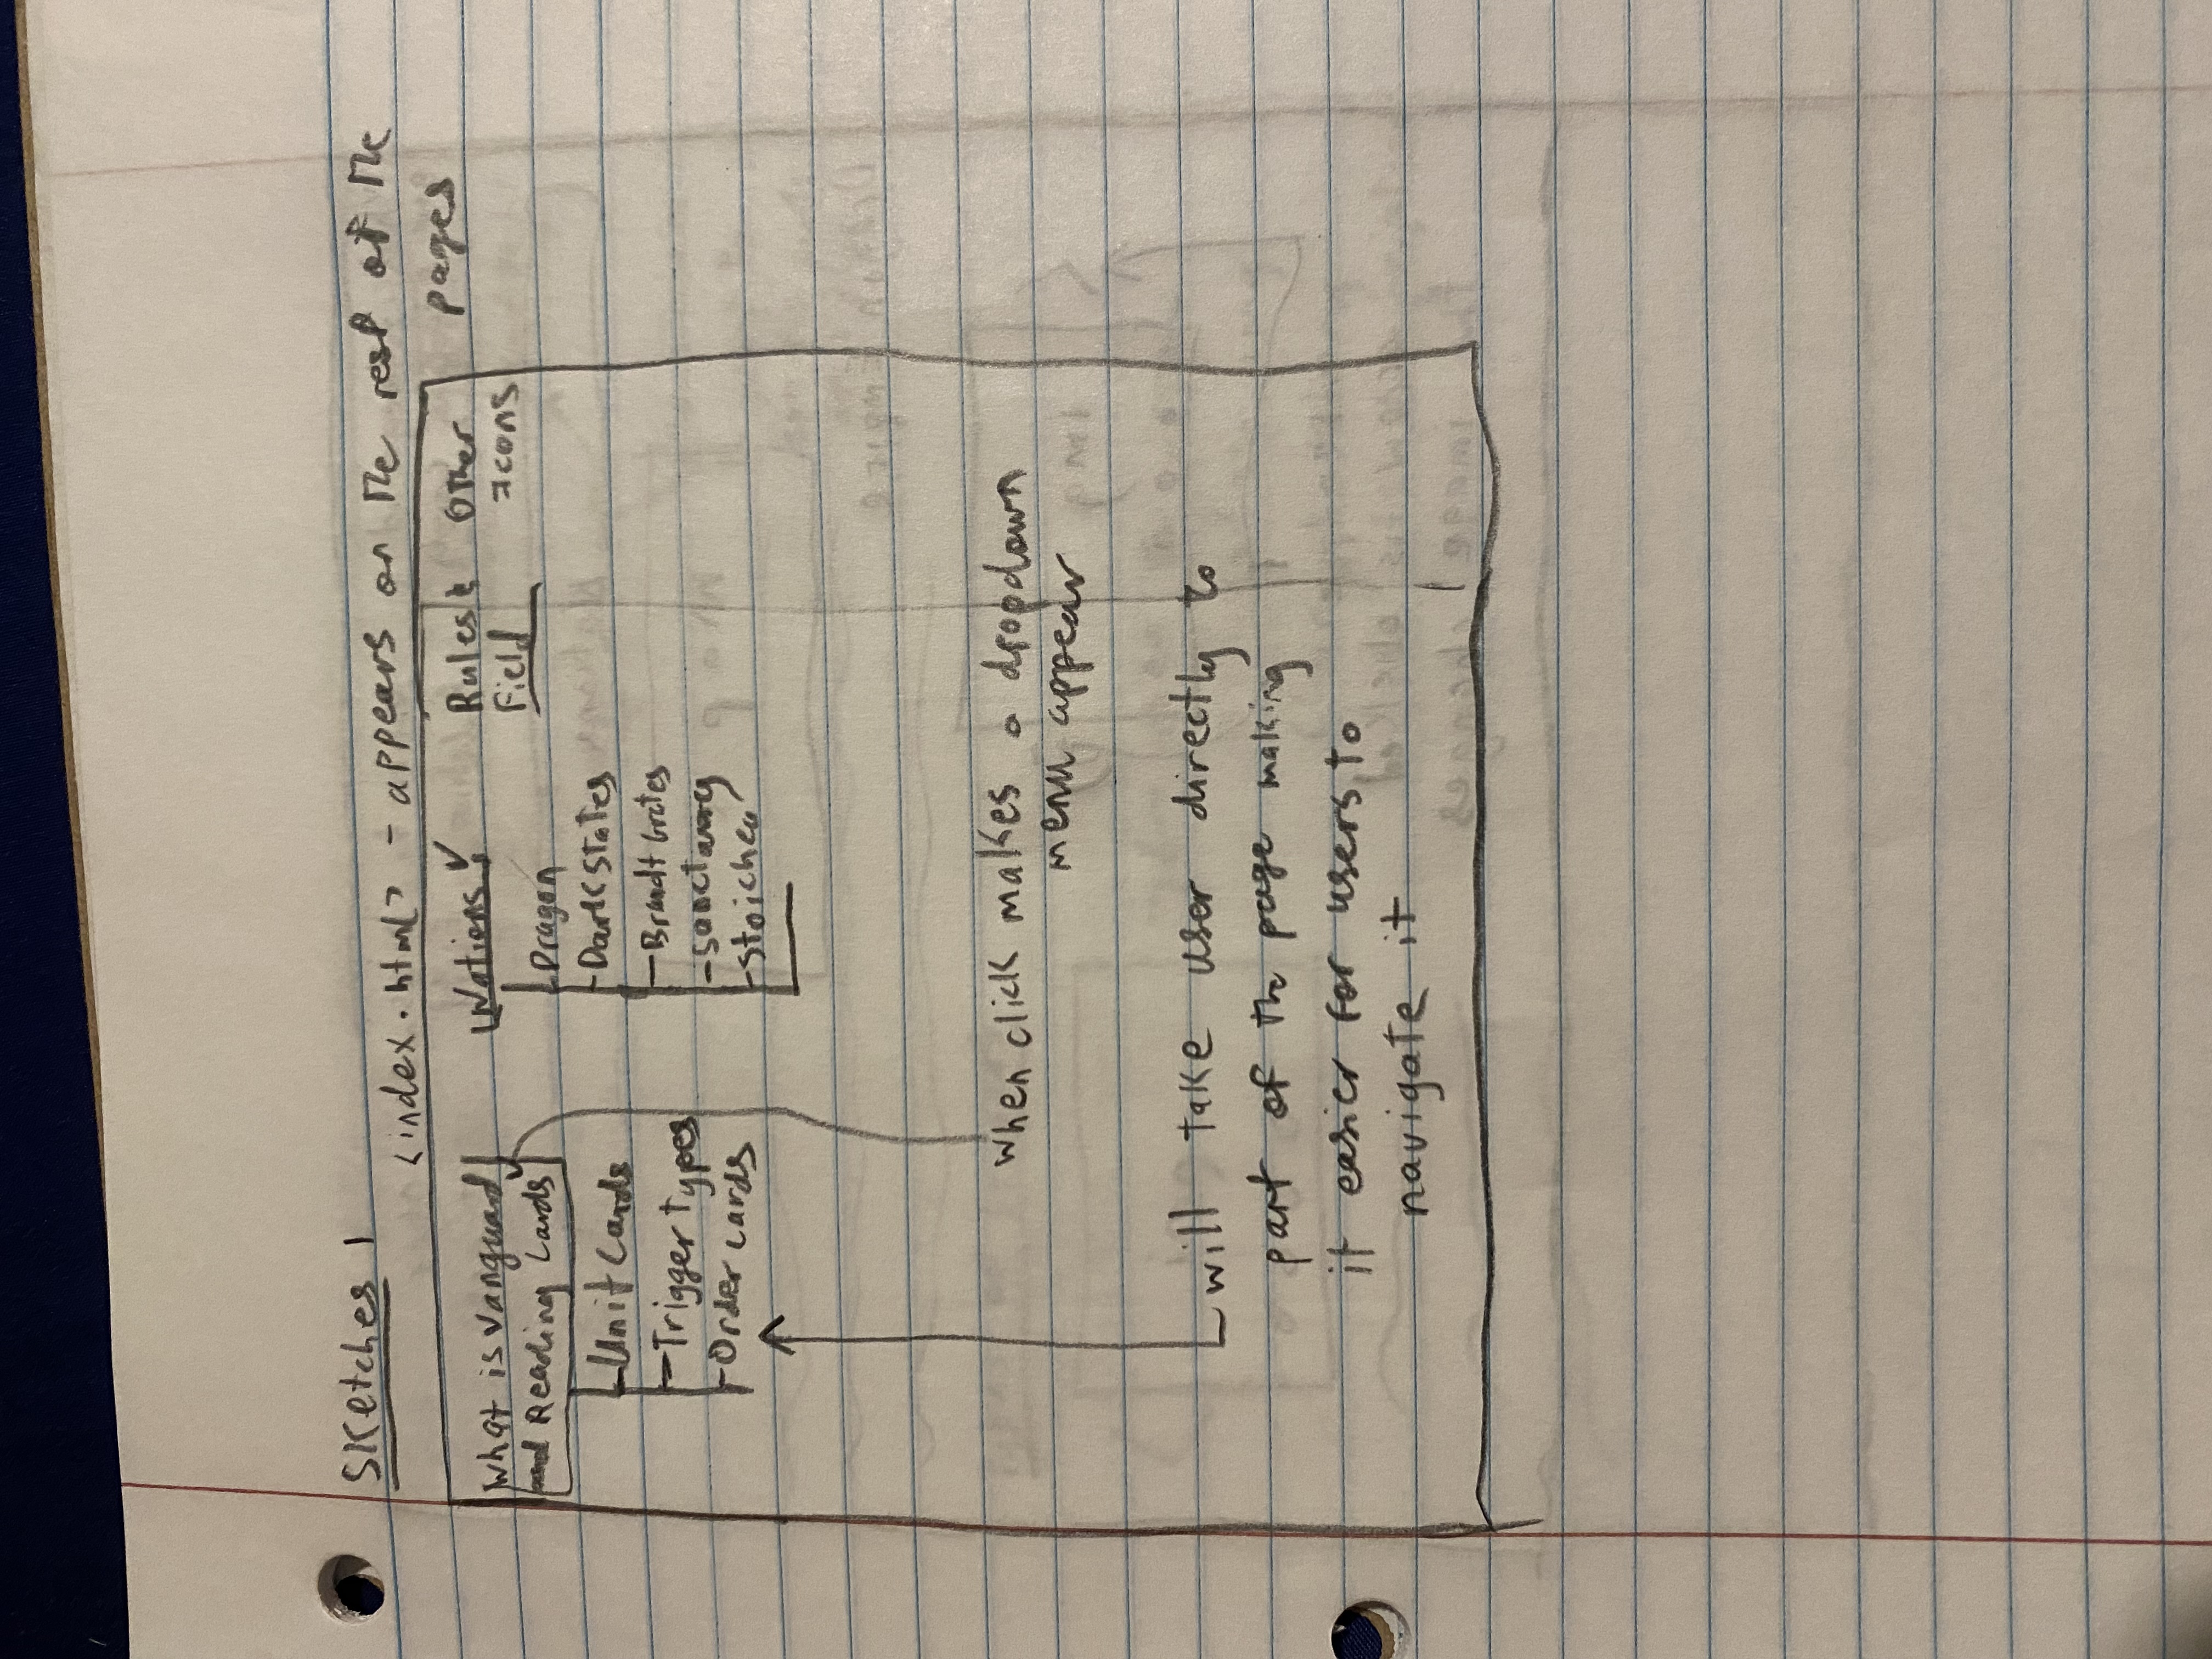 Sketches 1
<index.html> - appears on the rest of the
pages
What is Vanguard
Reading Cards
- Unit Cards
- Trigger types
- Order cards
Nations
- Dragon
- Dark States
- Brandt Gates
- Sanctuary
- Stoicheia
Rules &
Field
Other
Icons
when click makes a dropdown
menu appear
will take user directly to
part of the page making
it easier for users to
navigate it